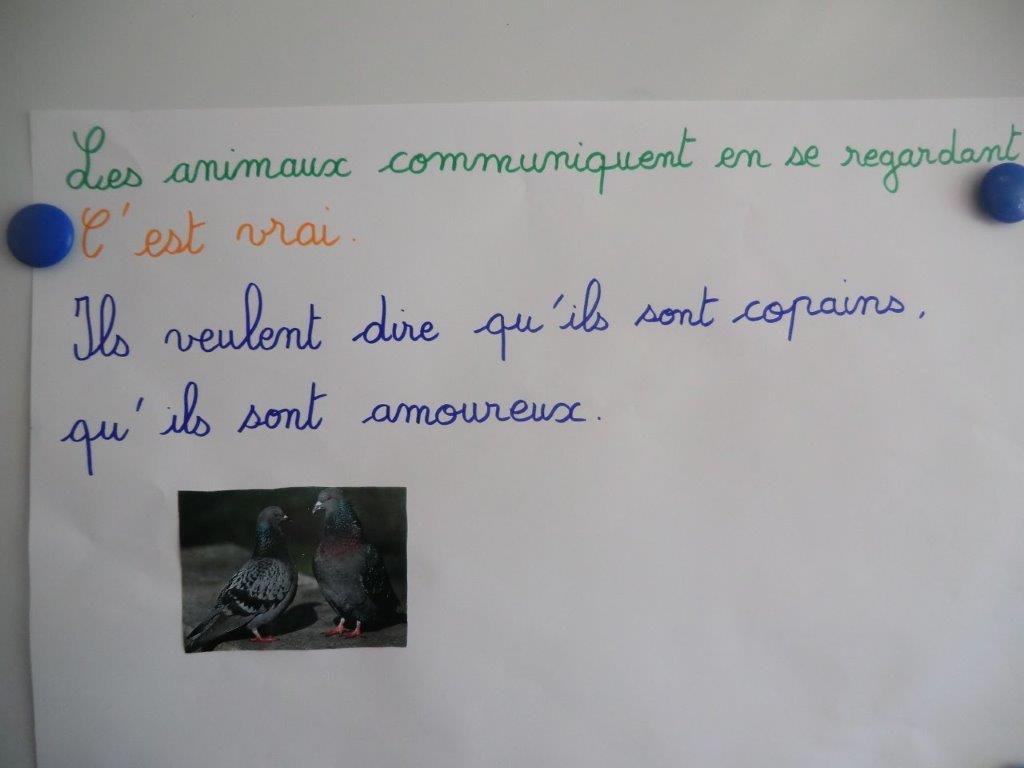 Les animaux communiquent en se regardant
C'est vrai.
Ils veulent dire qu'ils sont copains,
qu'ils sont amoureux.